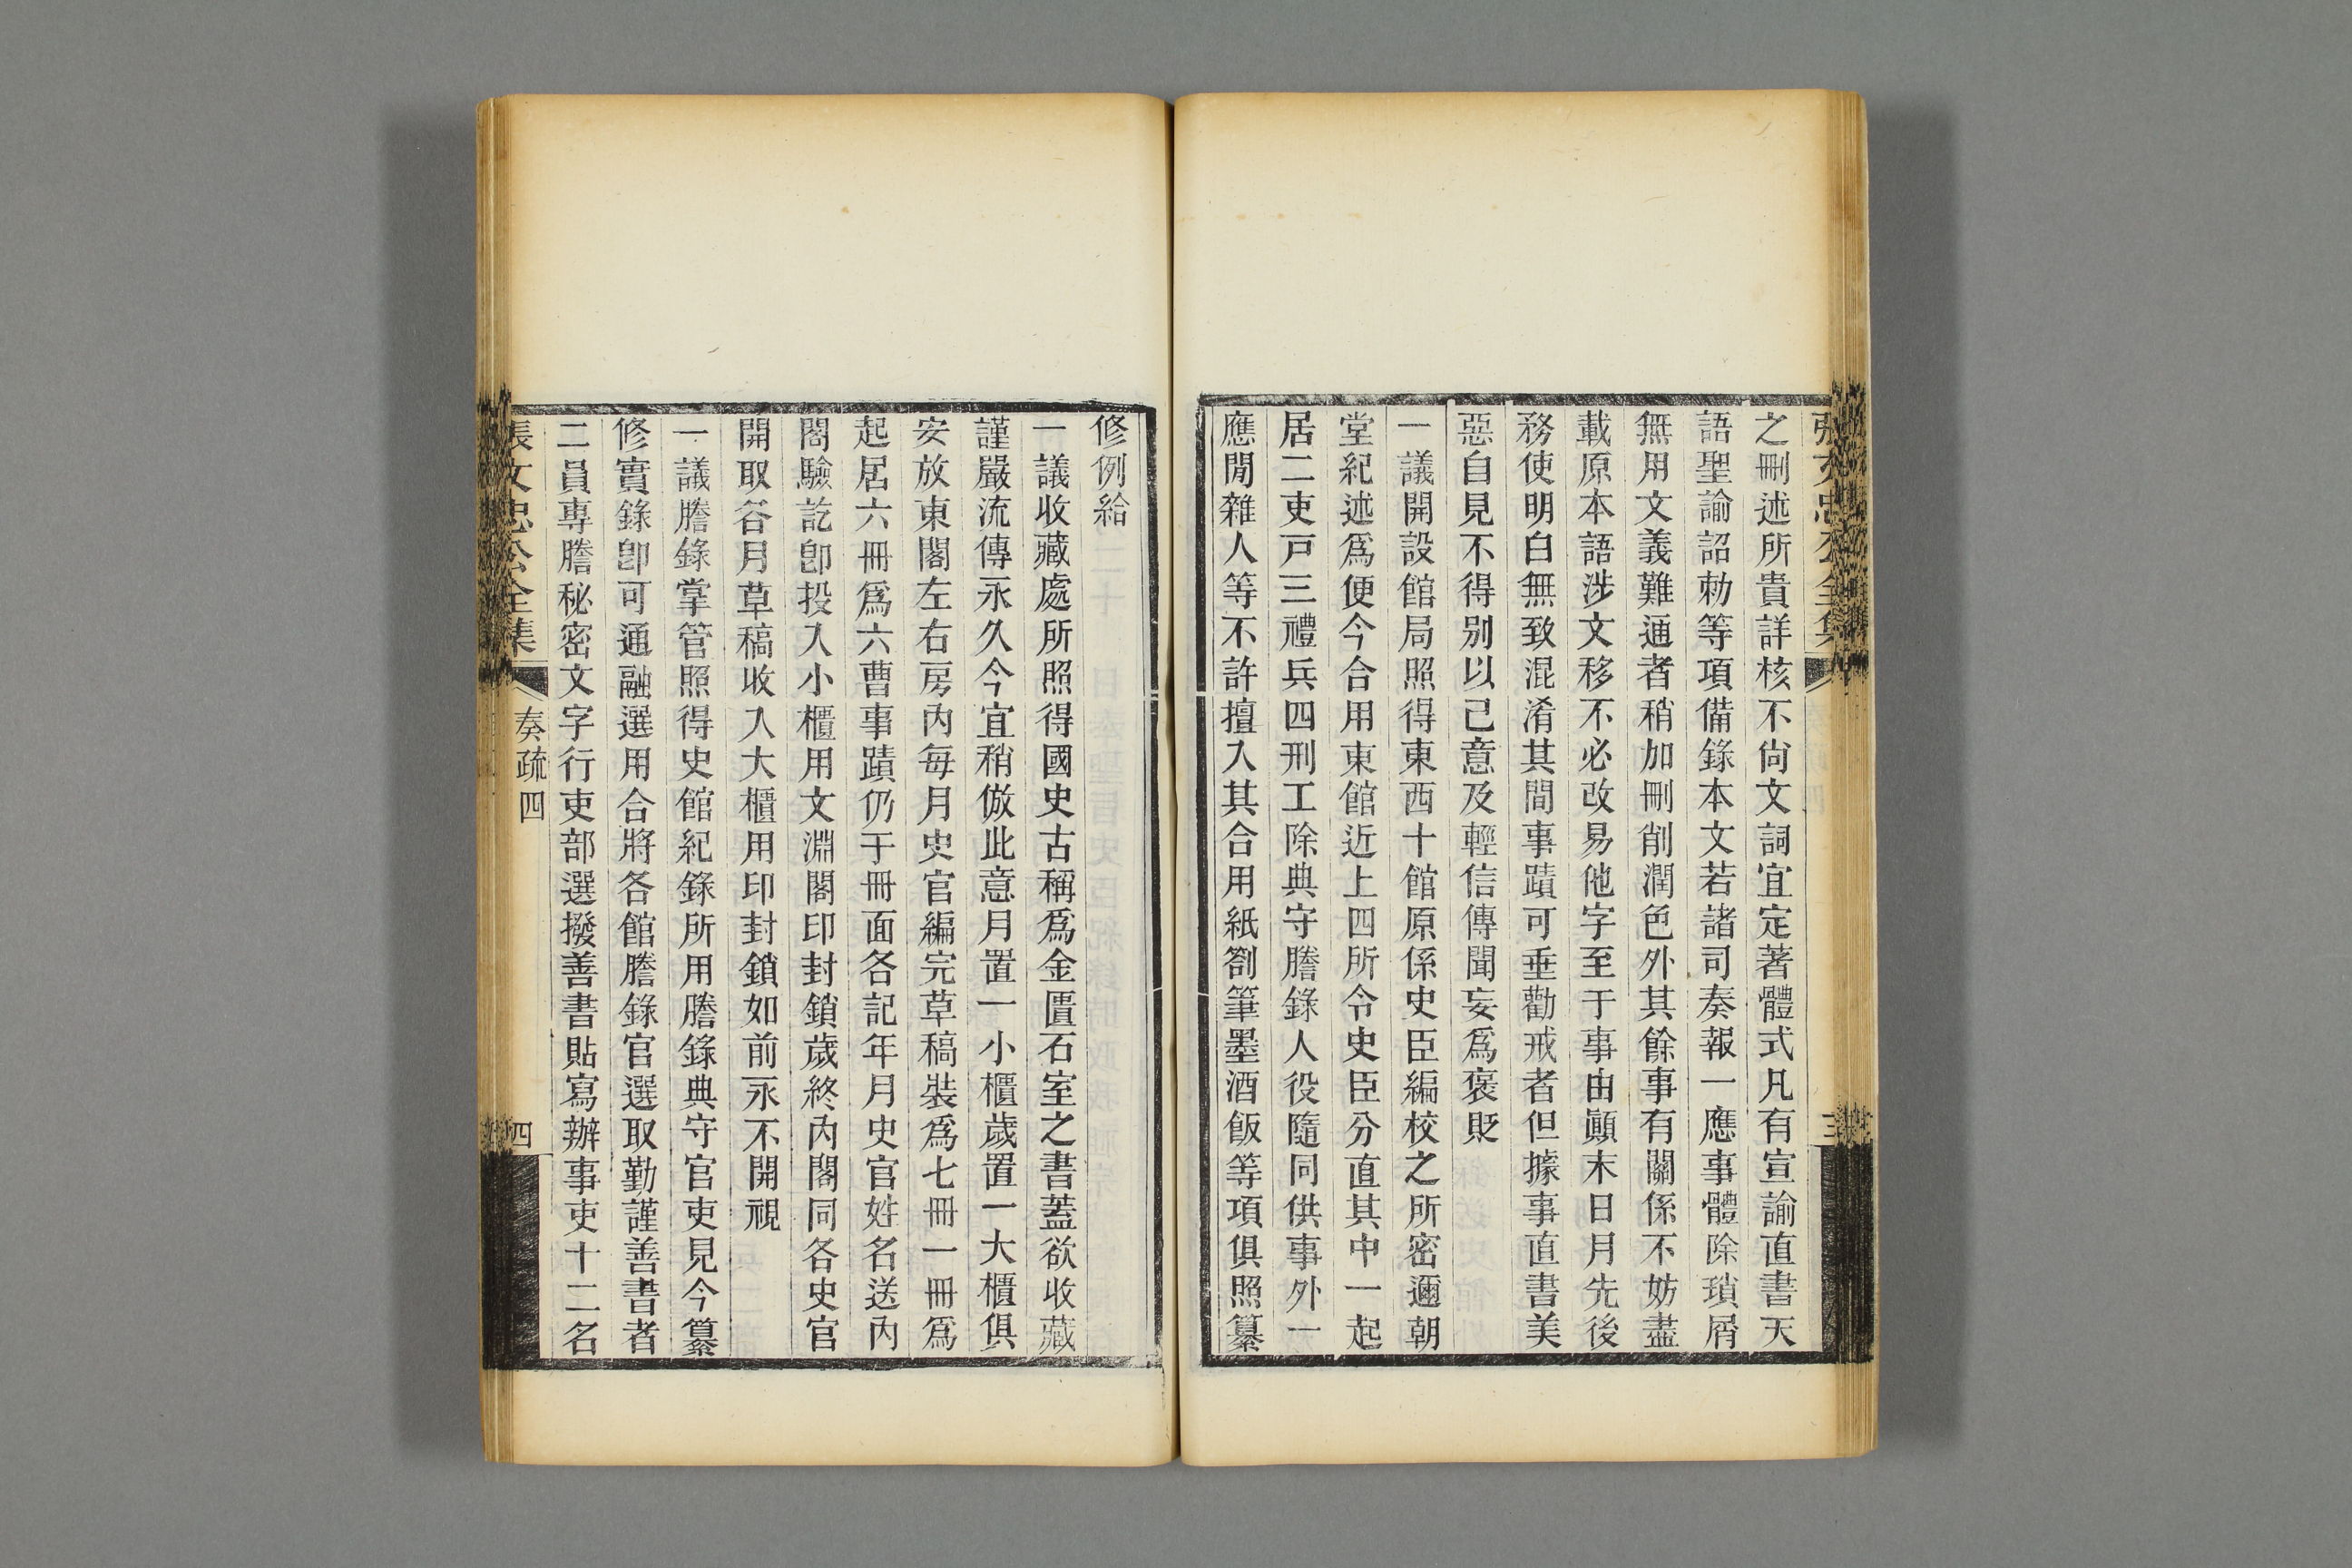 張文忠公全集
三
之刪述所貴詳核不尙文詞宜定著體式凡有宣諭直書天
語聖諭詔勅等項備錄本文若諸司奏報一應事體除瑣屑
無用文義難通者稍加刪削潤色外其餘事有關係不妨盡
載原本語涉文移不必改易他字至于事由顚末日月先後
務使明白無致混淆其間事蹟可垂勸戒者但據事直書美
惡自見不得別以己意及輕信傳聞妄爲褒貶
一議開設館局照得東西十館原係史臣編校之所密邇朝
堂紀述爲便今合用東館近上四所令史臣分直其中一起
居二吏戸三禮兵四刑工除典守謄錄人役隨同供事外一
應閒雜人等不許擅入其合用紙劄筆墨酒飯等項俱照纂
修例給
一議收藏處所照得國史古稱爲金匱石室之書蓋欲收藏
謹嚴流傳永久今宜稍倣此意月置一小櫃歲置一大櫃俱
安放東閣左右房內每月史官編完草稿裝爲七冊一冊爲
起居六冊爲六曹事蹟仍于冊面各記年月史官姓名送內
閣驗訖卽投入小櫃用文淵閣印封鎖歲終內閣同各史官
開取各月草稿收入大櫃用印封鎖如前永不開視
一議謄錄掌管照得史館紀錄所用謄錄典守官吏見今纂
修實錄卽可通融選用合將各館謄錄官選取勤謹善書者
二員專謄秘密文字行吏部選撥善書貼寫辦事吏十二名
張文忠公全集
奏疏四
四